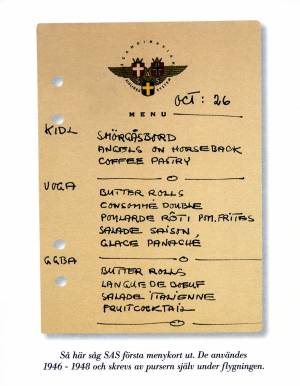 SCANDINAVIAN
SAS
AIRLINES SYSTEM
OCT: 26
MENU
KIDL
SMÖRGÅSBORD
ANGELS ON HORSEBACK
COFFEE PASTRY
VOGA
BUTTER ROLLS
CONSOMMÉ DOUBLE
POULARDE RÔTI POM. FRITES
SALADE SAISON
GLACE PANACHÉ
GGBA
BUTTER ROLLS
LANGUE DE BOEUF
SALADE ITALIENNE
FRUITCOCKTAIL
Så här såg SAS första menykort ut. De användes
1946 - 1948 och skrevs av pursern själv under flygningen.